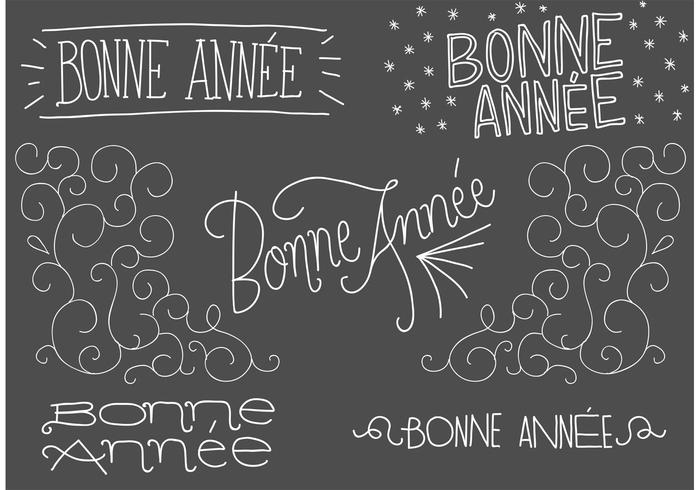 BONNE ANNÉE
BONNE
ANNÉE
Bonne Année
Bonne
Année
BONNE ANNÉE